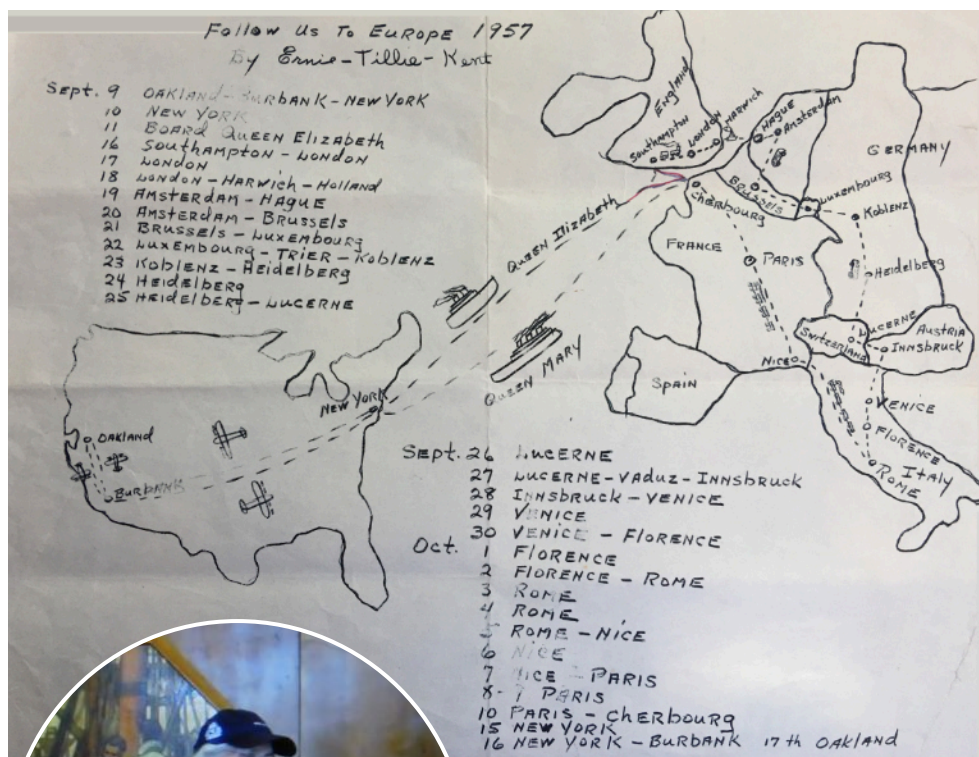 Follow Us To Europe 1957
By Ernie-Tillie-Kent
Sept. 9 OAKLAND-BURBANK-NEW YORK
10 NEW YORK
11 BOARD QUEEN ELIZABETH
16 SOUTHAMPTON - LONDON
17 LONDON
18 LONDON-HARWICH-HOLLAND
19 AMSTERDAM - HAGUE
20 AMSTERDAM - BRUSSELS
21 BRUSSELS - LUXEMBOURG
22 LUXEMBOURG - TRIER - KOBLENZ
23 KOBLENZ - HEIDELBERG
24 HEIDELBERG
25 HEIDELBERG - LUCERNE
ENGLAND
SOUTHAMPTON
LONDON
HARWICH
HAGUE
AMSTERDAM
GERMANY
BRUSSELS
LUXEMBOURG
CHERBOURG
KOBLENZ
QUEEN ELIZABETH
FRANCE
PARIS
HEIDELBERG
SWITZERLAND
LUCERNE
AUSTRIA
INNSBRUCK
NICE
SPAIN
QUEEN MARY
VENICE
FLORENCE
ITALY
ROME
NEW YORK
OAKLAND
BURBANK
Sept. 26 LUCERNE
27 LUCERNE-VADUZ-INNSBRUCK
28 INNSBRUCK - VENICE
29 VENICE
30 VENICE - FLORENCE
Oct. 1 FLORENCE
2 FLORENCE - ROME
3 ROME
4 ROME
5 ROME - NICE
6 NICE
7 NICE - PARIS
8- PARIS
10 PARIS - CHERBOURG
15 NEW YORK
16 NEW YORK - BURBANK 17th OAKLAND